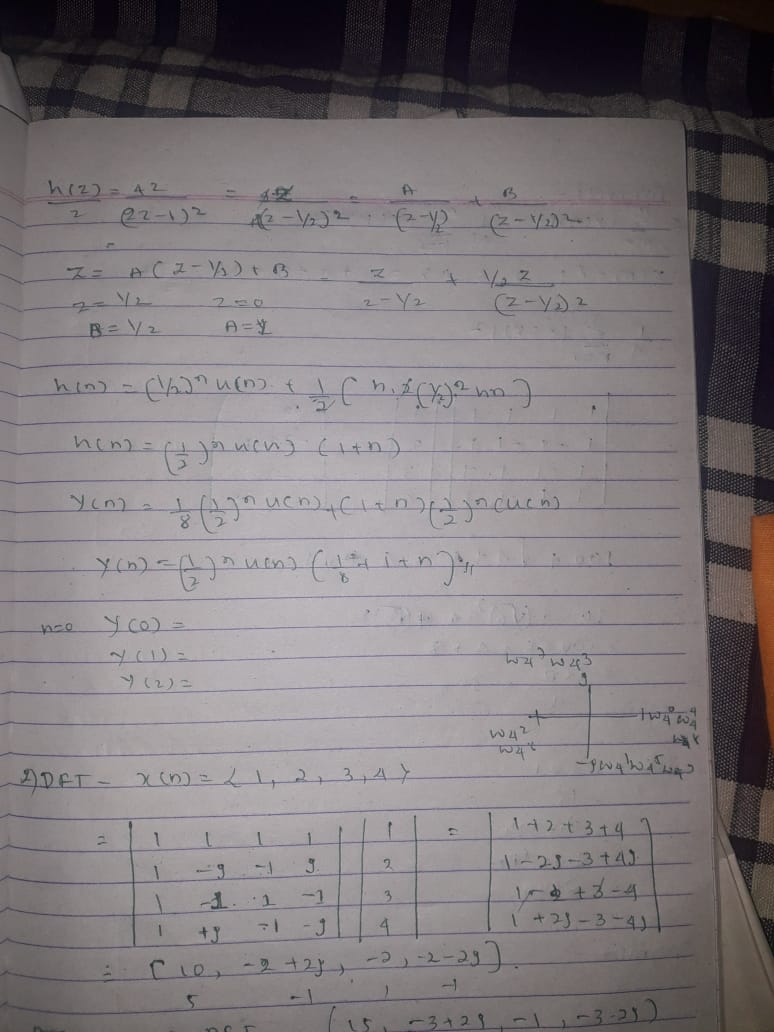 h(z)/z = 4z/(2z-1)² = z/(z-1/2)² = A/(z-1/2) + B/(z-1/2)²
z = A(z-1/2) + B    z/(z-1/2) + 1/2 z/(z-1/2)²
z=1/2    z=0
B=1/2    A=1
h(n) = (1/2)ⁿ u(n) + 1/2 ( n.2(1/2)ⁿ un)
h(n) = (1/2)ⁿ u(n) (1+n)
y(n) = 1/8 (1/2)ⁿ u(n) + (1+n)(1/2)ⁿ u(n)
y(n) = (1/2)ⁿ u(n) (1/8 + 1+n)
n=0 y(0) =
y(1) =
y(2) =
w4⁷ w4³
j
1 w4⁰ w4⁴
w4⁸
w4²
w4⁶
-j w4¹ w4⁵ w4⁹
2) DFT - x(n) = { 1, 2, 3, 4 }
= | 1 1 1 1 | | 1 | = | 1+2+3+4 |
| 1 -j -1 j | | 2 | | 1-2j-3+4j |
| 1 -1 1 -1 | | 3 | | 1-2+3-4 |
| 1 +j -1 -j | | 4 | | 1+2j-3-4j |
= [10, -2+2j, -2, -2-2j]
5 -1 1 -1
DFT (15, -3+2j, -1, -3-2j)